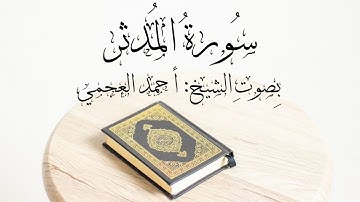 سُورةُ المُدثر
بِصوتِ الشيخ: أحمد العجمي